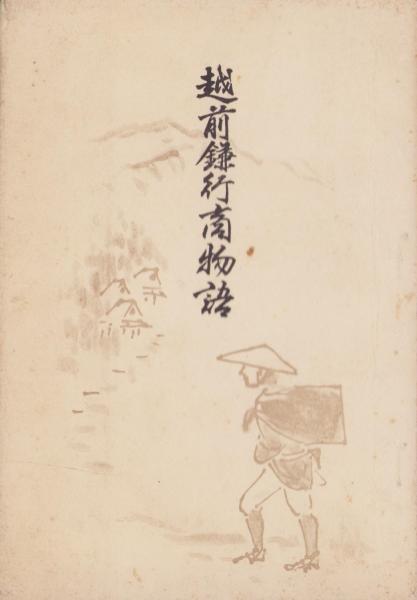 越前鎌行商物語